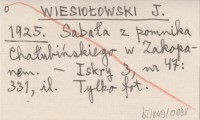 WIESIOŁOWSKI J.
1925. Sabała z pomnika
Chałubińskiego w Zakopa-
nem. — Iskry 3, nr 47:
331, il. Tylko fot.